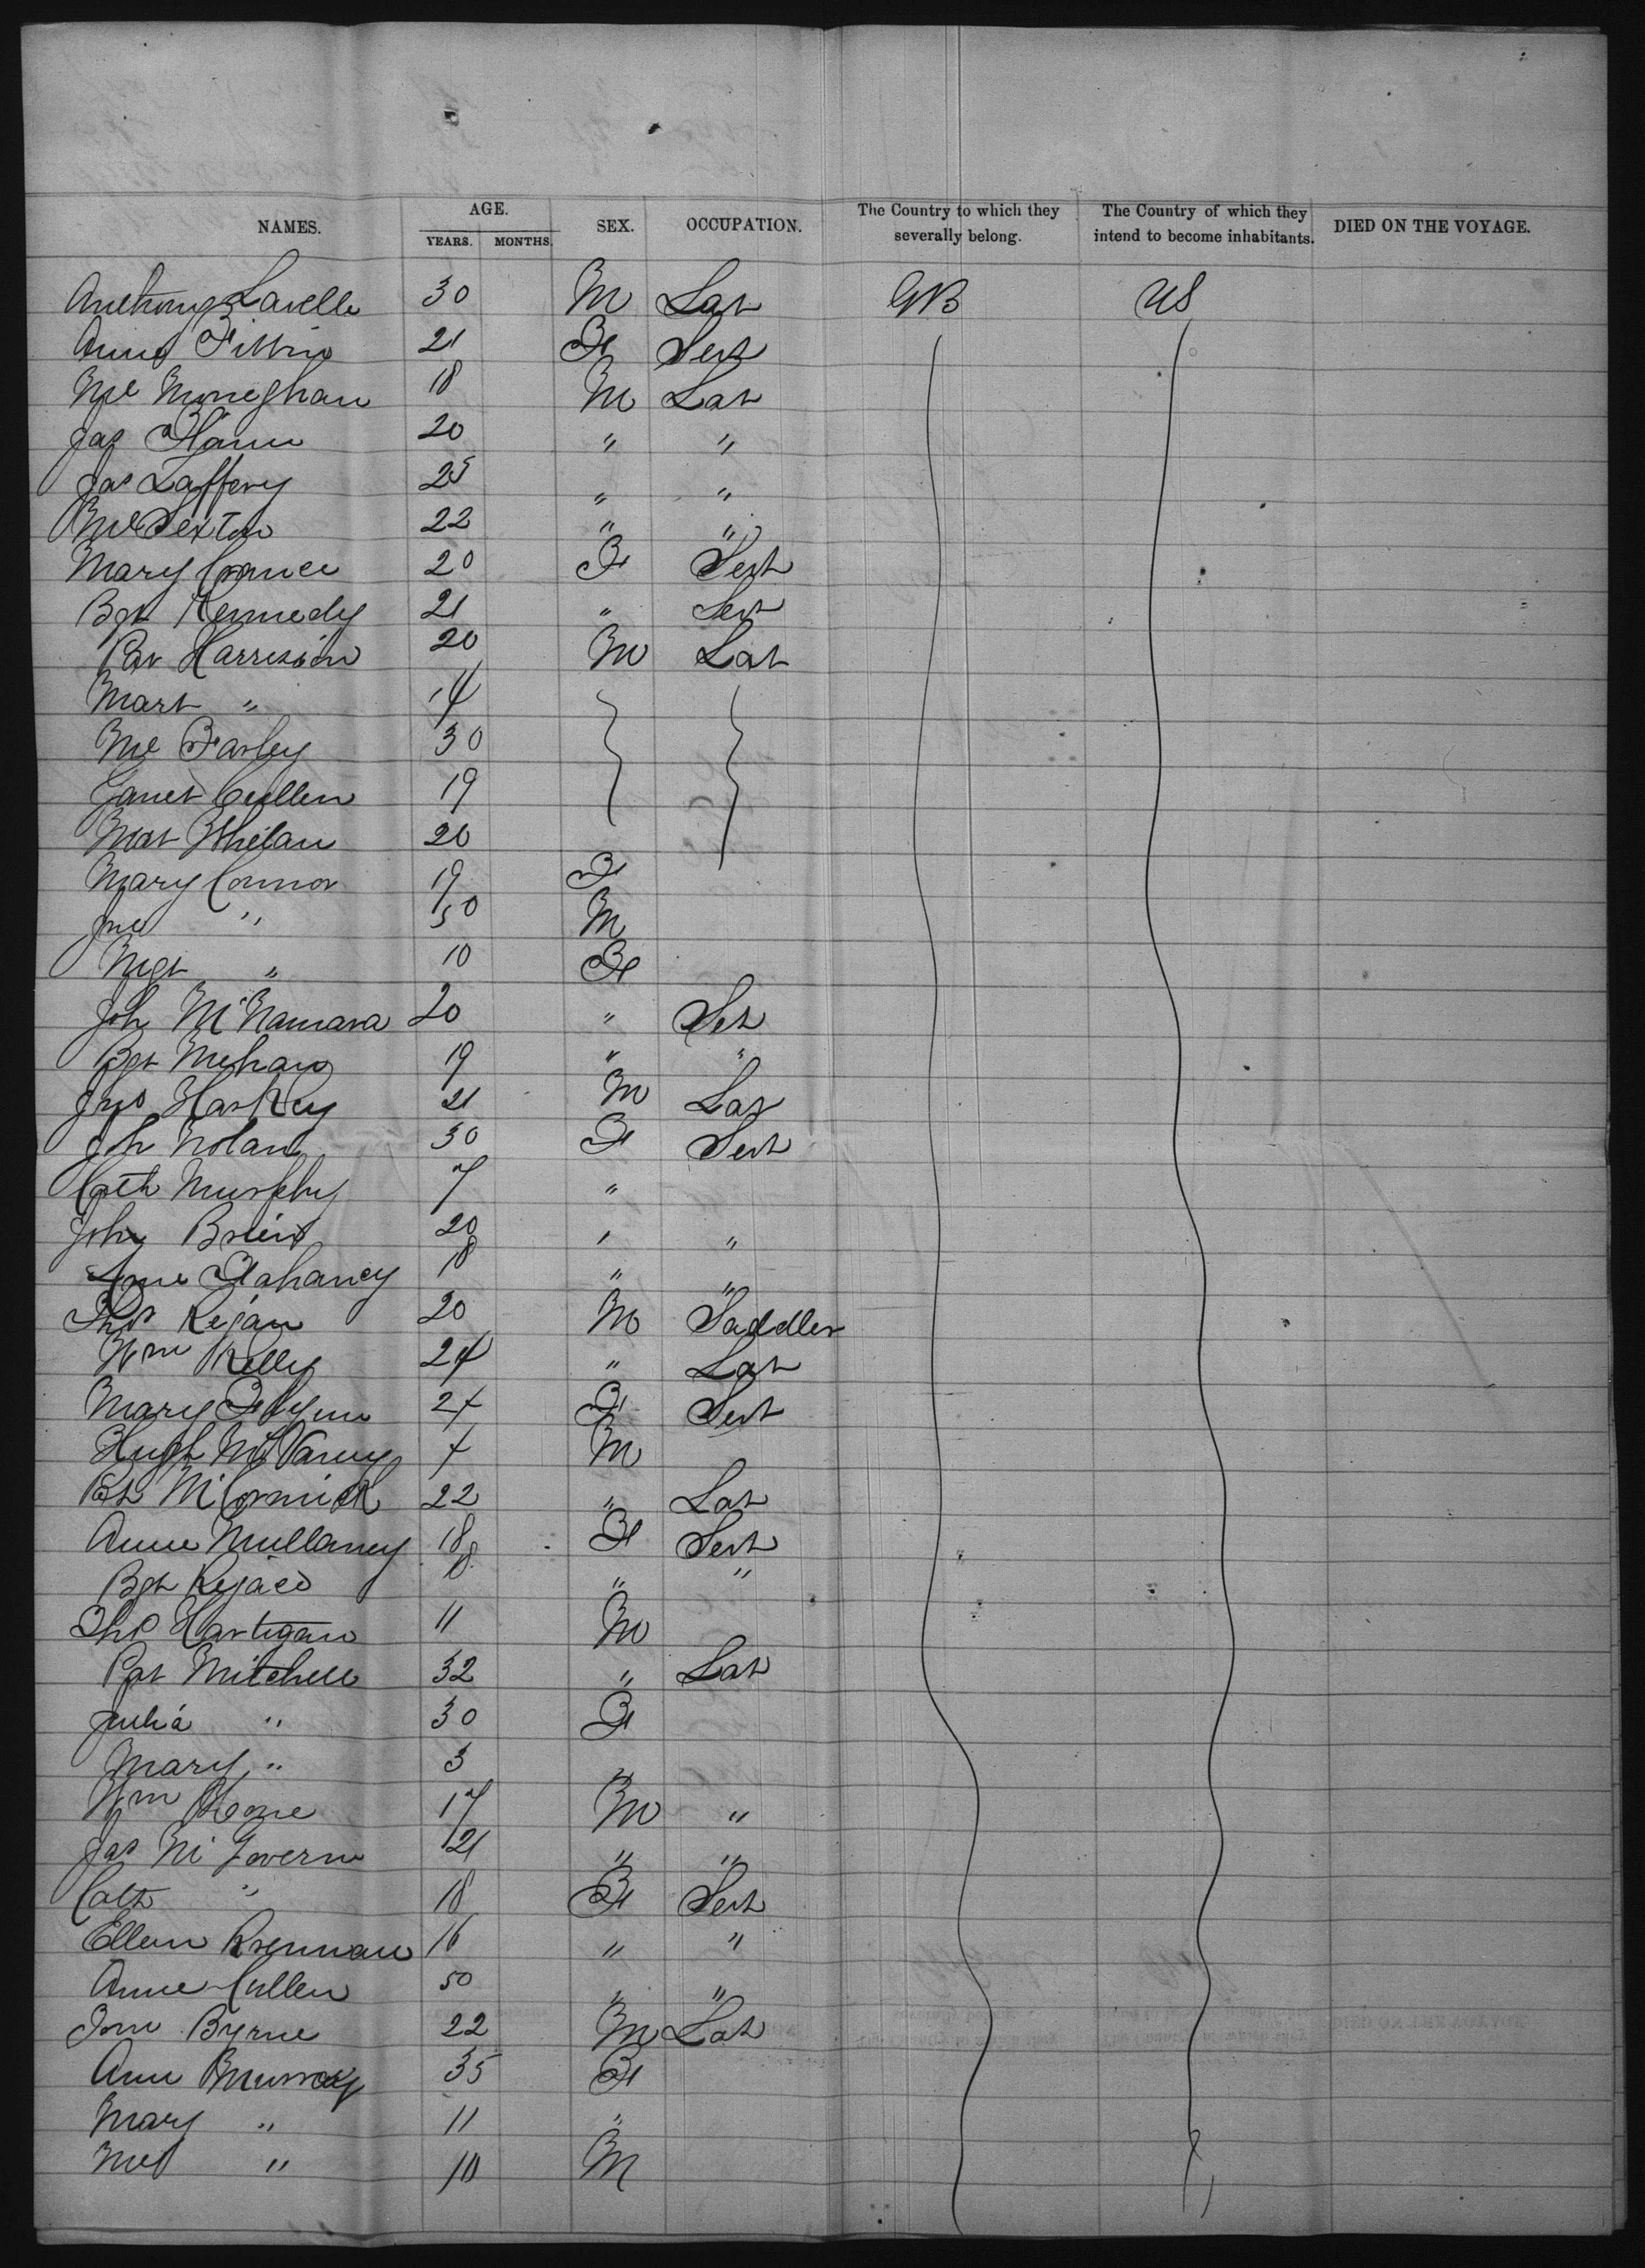 NAMES. AGE. YEARS. MONTHS. SEX. OCCUPATION. The Country to which they severally belong. The Country of which they intend to become inhabitants. DIED ON THE VOYAGE.
Anthony Lavelle 30 M Lab GB US
Anne 21 F Sevt
Ml Moneghan 18 M Lab
Jas 20 " "
Jas Laffery 25 " "
Ml Sexton 22 " "
Mary 20 F Sevt
Bgt Kennedy 21 " Sevt
Pat Harrison 20 M Lab
Mart " 14
Ml Farley 30
James Cullen 19
Mat Whelan 20
Mary Connor 19 F
Jno " 50 M
Mgt " 10 F
Joh McNamara 20 " Sevt
Bgt Mehan 19 " "
Jno Harkey 21 M Lab
Joh Nolan 30 F Sevt
Cath Murphy 7 "
Joh Brien 20 " "
Anne Flahaney 18 " "
Thos Regan 20 M Saddler
Wm Kelly 24 " Lab
Mary Flynn 24 F Sevt
Hugh 4 M
Pat McCormick 22 " Lab
Anne Mullaney 18 F Sevt
Bgt 18 " "
Thos Hartigan 11 M
Pat Mitchell 32 " Lab
Julia " 30 F
Mary " 3 "
Wm 17 M "
Jas McGovern 21 " "
Cath " 18 F Sevt
Ellen Brennan 16 " "
Anne Cullen 50 " "
Tom Byrne 22 M Lab
Ann Murray 35 F
Mary " 11 "
Ml " 10 M